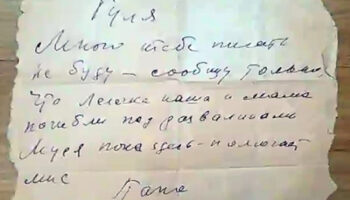 Гуля
Много тебе писать
не буду — сообщу только,
что Лелечка наша и мама
погибли под развалинами
Муся пока здесь - помогает
мне
Папа